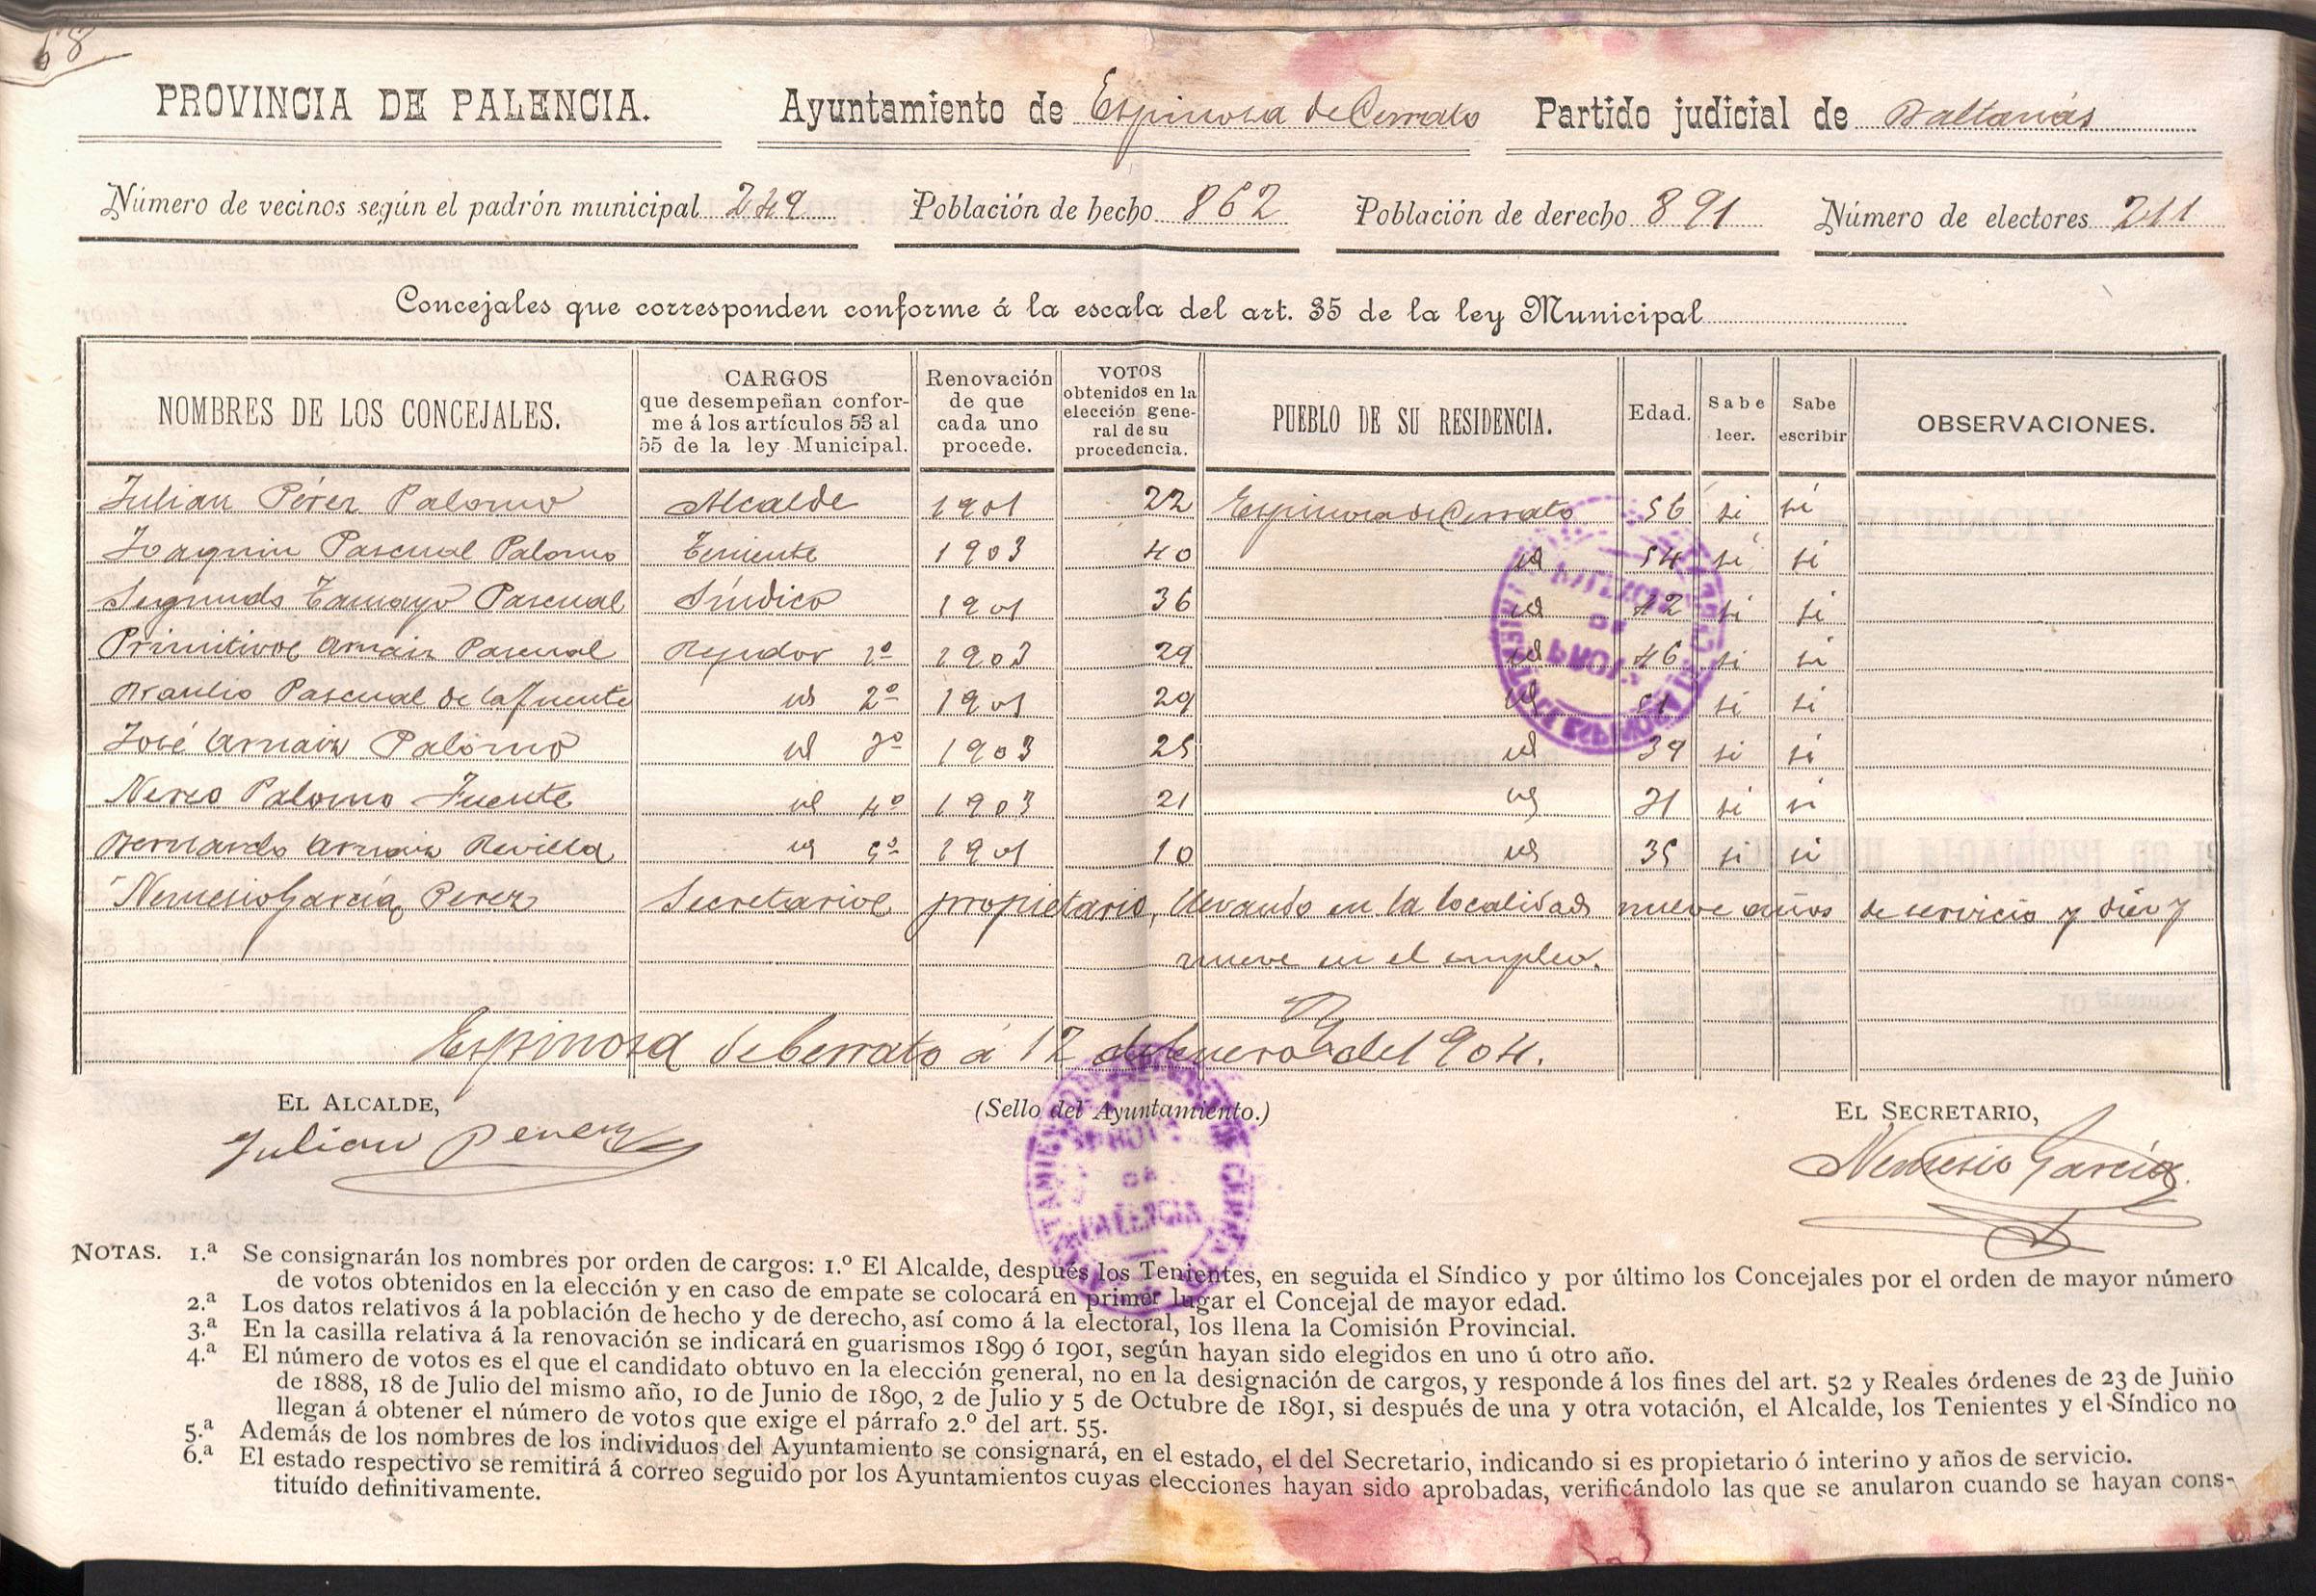 68
PROVINCIA DE PALENCIA. Ayuntamiento de Espinosa de Cerrato Partido judicial de Baltanás
Número de vecinos según el padrón municipal 249 Población de hecho 862 Población de derecho 891 Número de electores 211
Concejales que corresponden conforme á la escala del art. 35 de la ley Municipal
NOMBRES DE LOS CONCEJALES. CARGOS que desempeñan conforme á los artículos 53 al 55 de la ley Municipal. Renovación de que cada uno procede. VOTOS obtenidos en la elección general de su procedencia. PUEBLO DE SU RESIDENCIA. Edad. Sabe leer. Sabe escribir OBSERVACIONES.
Julian Pérez Palomo Alcalde 1901 22 Espinosa de Cerrato 56 si sí
Joaquin Pascual Palomo Teniente 1903 40 id 54 si si
Segundo Tamayo Pascual Síndico 1901 36 id 42 si si
Primitivo Arnaiz Pascual Regidor 1º 1903 29 id 46 si si
Braulio Pascual de la Fuente id 2º 1901 29 id 51 si si
José Arnaiz Palomo id 3º 1903 25 id 39 si si
Nereo Palomo Fuente id 4º 1903 21 id 31 si si
Bernardo Arnaiz Revilla id 5º 1901 10 id 35 si si
Nemesio García Perez Secretario propietario, llevando en la localidad nueve años de servicio y diez y
nueve en el empleo.
Espinosa de Cerrato á 12 de Enero del 904.
EL ALCALDE, (Sello del Ayuntamiento.) EL SECRETARIO,
Julian Perez Nemesio García
AYUNTAMIENTO DE ESPINOSA DE CERRATO
PROVA DE PALENCIA
NOTAS. 1.ª Se consignarán los nombres por orden de cargos: 1.º El Alcalde, después los Tenientes, en seguida el Síndico y por último los Concejales por el orden de mayor número
de votos obtenidos en la elección y en caso de empate se colocará en primer lugar el Concejal de mayor edad.
2.ª Los datos relativos á la población de hecho y de derecho, así como á la electoral, los llena la Comisión Provincial.
3.ª En la casilla relativa á la renovación se indicará en guarismos 1899 ó 1901, según hayan sido elegidos en uno ú otro año.
4.ª El número de votos es el que el candidato obtuvo en la elección general, no en la designación de cargos, y responde á los fines del art. 52 y Reales órdenes de 23 de Junio
de 1888, 18 de Julio del mismo año, 10 de Junio de 1890, 2 de Julio y 5 de Octubre de 1891, si después de una y otra votación, el Alcalde, los Tenientes y el Síndico no
llegan á obtener el número de votos que exige el párrafo 2.º del art. 55.
5.ª Además de los nombres de los individuos del Ayuntamiento se consignará, en el estado, el del Secretario, indicando si es propietario ó interino y años de servicio.
6.ª El estado respectivo se remitirá á correo seguido por los Ayuntamientos cuyas elecciones hayan sido aprobadas, verificándolo las que se anularon cuando se hayan cons-
tituído definitivamente.